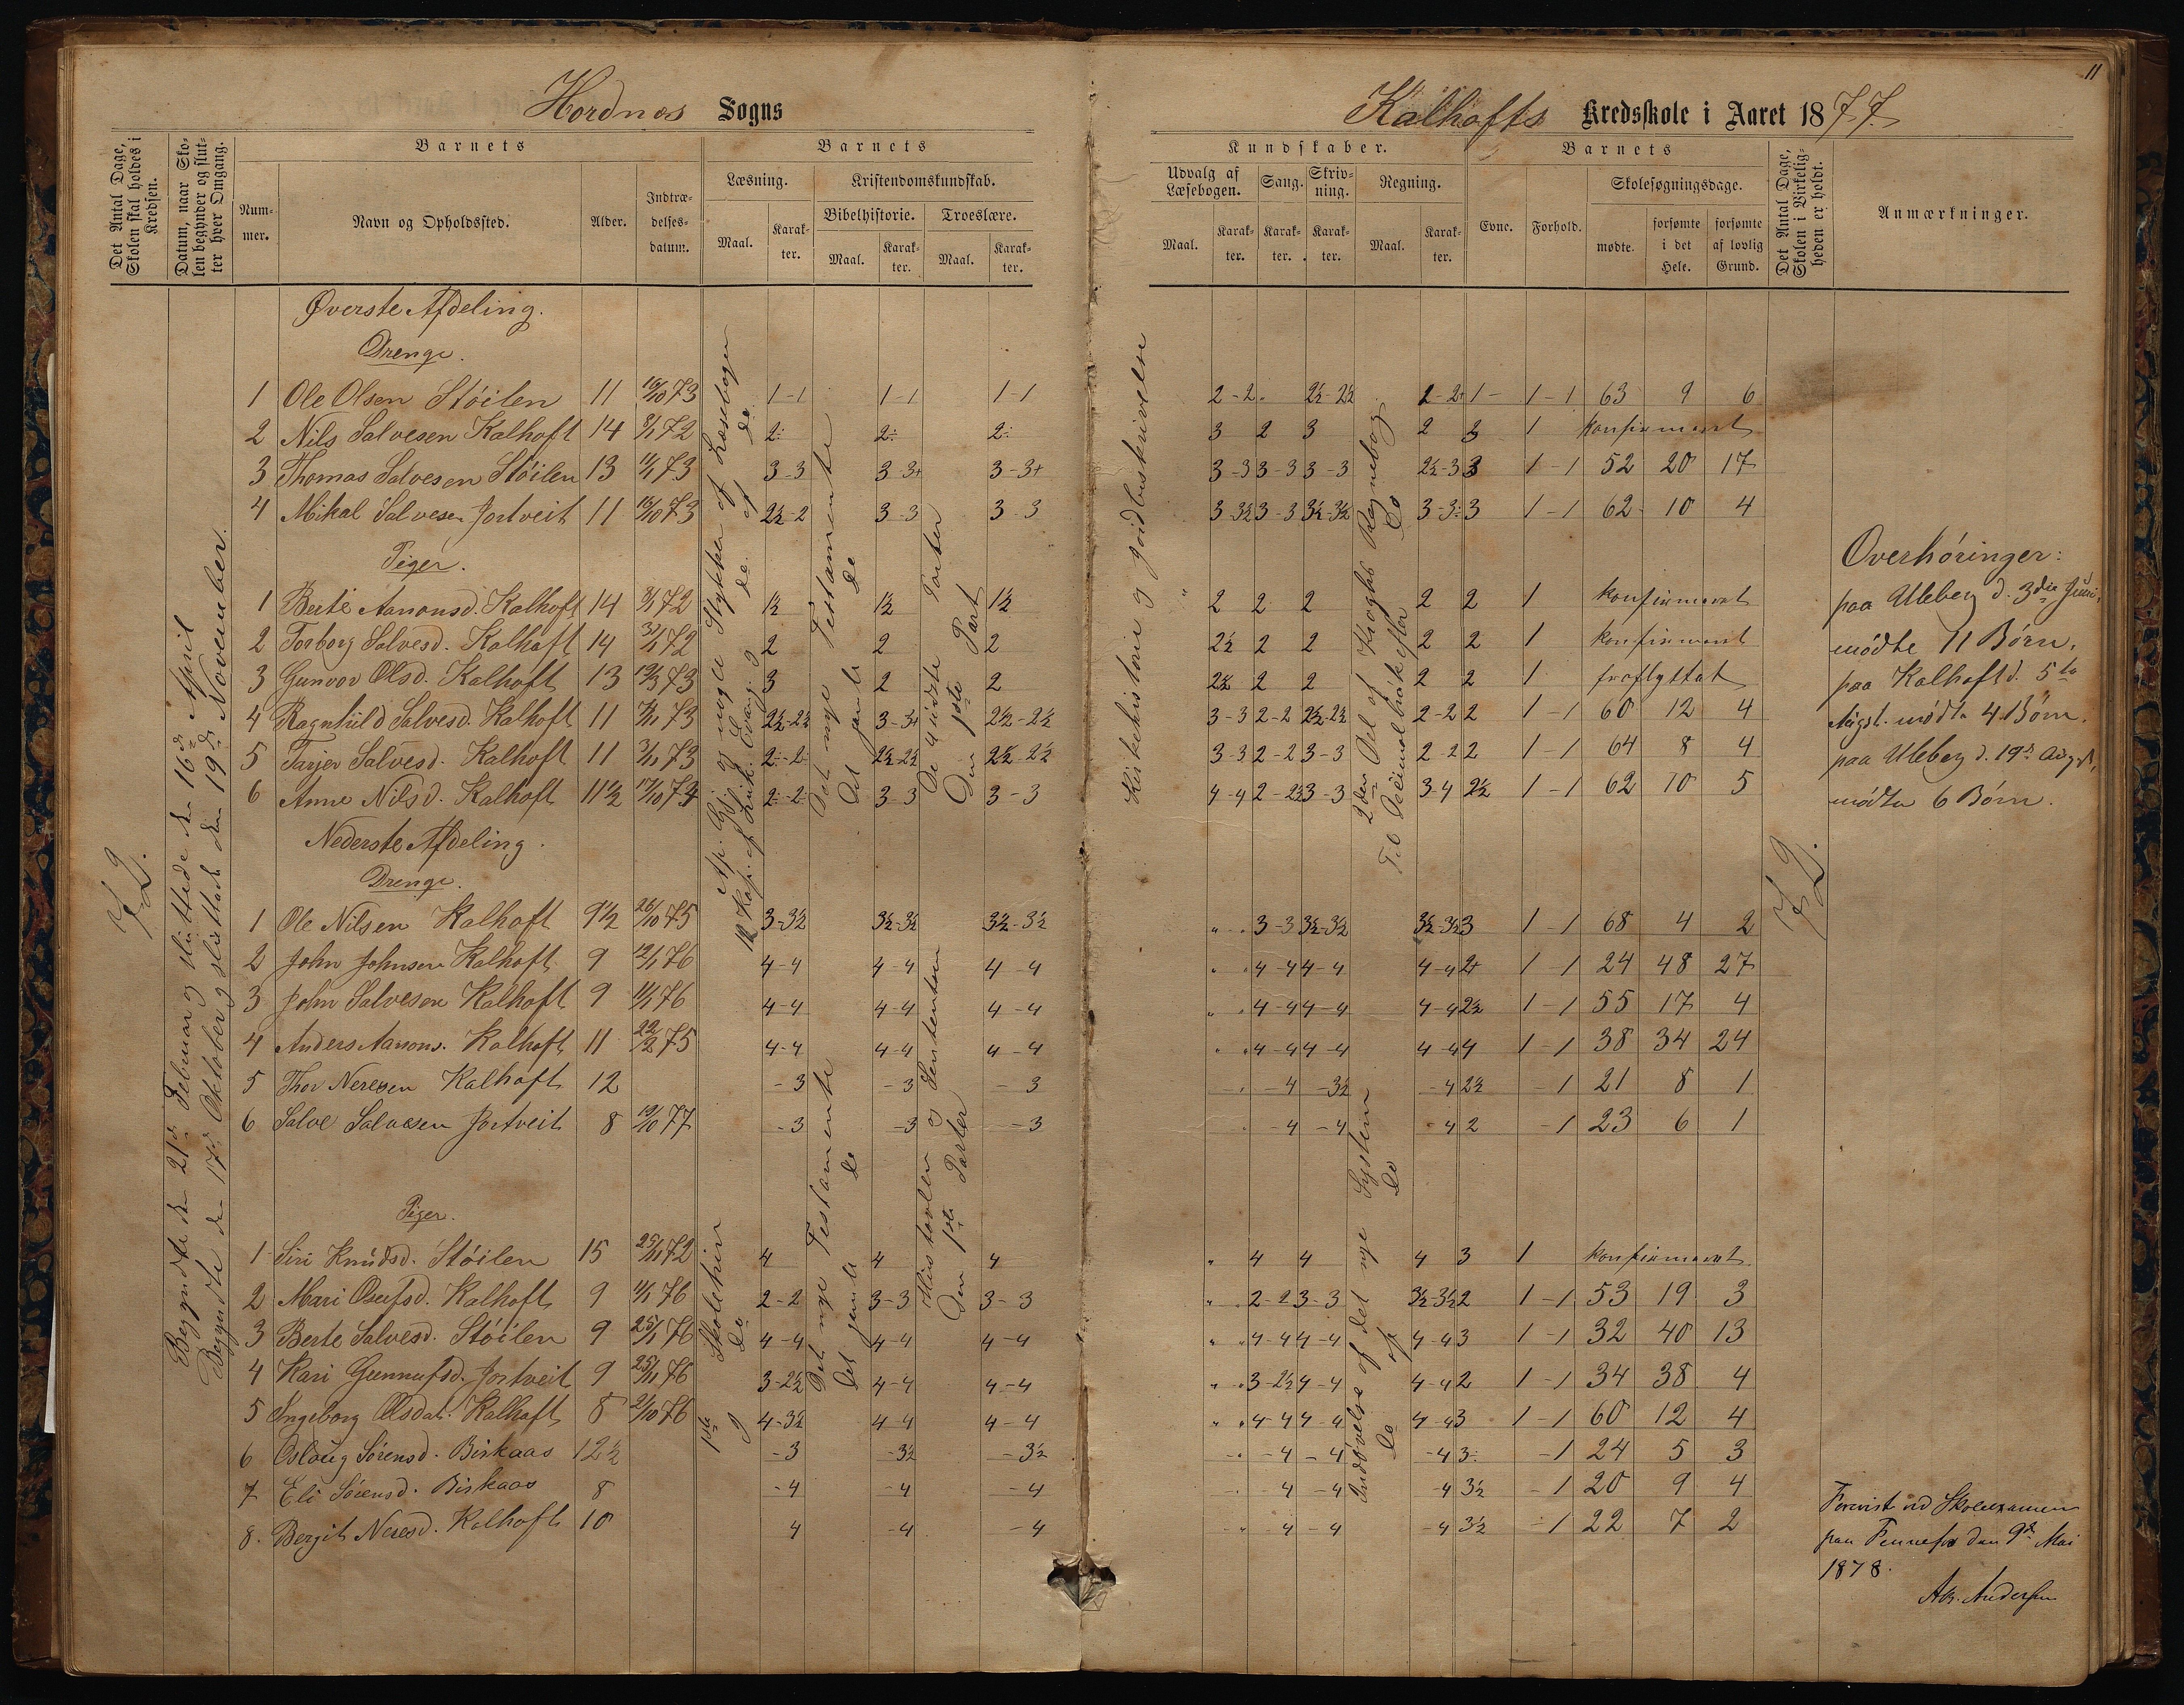 11
Hordnes Sogns
Kalhofts Kredsskole i Aaret 1877.
Det Antal Dage, Skolen skal holdes i Kredsen.
Datum, naar Skolen begynder og slutter hver Omgang.
Barnets
Nummer.
Navn og Opholdssted.
Alder.
Indtrædelsesdatum.
Barnets
Læsning.
Maal.
Karakter.
Kristendomskundskab.
Bibelhistorie.
Maal.
Karakter.
Troeslære.
Maal.
Karakter.
Kundskaber.
Udvalg af Læsebogen.
Maal.
Karakter.
Sang.
Karakter.
Skrivning.
Karakter.
Regning.
Maal.
Karakter.
Barnets
Evne.
Forhold.
Skolesøgningsdage.
mødte.
forsømte i det Hele.
forsømte af lovlig Grund.
Det Antal Dage, Skolen i Virkeligheden er holdt.
Anmærkninger.
72.
Begyndte den 21de Februar og sluttede den 16de April
Begyndte den 17de Oktober og sluttede den 19de November.
Øverste Afdeling.
Drenge.
1 Ole Olsen Stöilen 11 16/10 73 1-1 1-1 1-1 2-2 2½-2½ 2-2+ 1- 1-1 63 9 6
2 Nils Salvesen Kalhoft 14 8/1 72 2÷ 2÷ 2÷ 3 2 3 2 3 1 konfirmeret
3 Thomas Salvesen Stöilen 13 11/1 73 3-3 3-3+ 3-3+ 3-3 3-3 3-3 2½-3 3 1-1 52 20 17
4 Mikal Salvesen Jortveit 11 16/10 73 2½-2 3-3 3-3 3-3½ 3-3 3½-3½ 3-3÷ 3 1-1 62 10 4
Piger.
1 Berte Aanonsd. Kalhoft 14 8/1 72 1½ 1½ 1½ 2 2 2 2 2 1 konfirmeret
2 Torborg Salvesd. Kalhoft 14 31/1 72 2 2 2 2½ 2 2 2 2 1 konfirmeret
3 Gunvor Olsd. Kalhoft 13 19/3 73 3 2 2 2½ 2 2 2 2 1 fraflyttet
4 Ragnhild Salvesd. Kalhoft 11 73 2½-2½ 3-3+ 2½-2½ 3-3 2-2 2½-2½ 2-2 2 1-1 60 12 4
5 Tarjer Salvesd. Kalhoft 11 73 2÷-2÷ 2½-2½ 2½-2½ 3-3 2-2 3-3 2-2 2 1-1 64 8 4
6 Anne Nilsd. Kalhoft 11½ 17/10 74 2÷-2÷ 3-3 3-3 4-4 2-2½ 3-3 3-4 2½ 1-1 62 10 5
Nederste Afdeling.
Drenge.
1 Ole Nilsen Kalhoft 9½ 26/10 75 3-3½ 3½-3½ 3½-3½ " 3-3 3½-3½ 3½-3½ 3 1-1 68 4 2
2 John Johnsen Kalhoft 9 12/1 76 4-4 4-4 4-4 " 4-4 4-4 4-4 2+ 1-1 24 48 27
3 John Salvesen Kalhoft 9 11/1 76 4-4 4-4 4-4 " 4-4 4-4 4-4 2½ 1-1 55 17 4
4 Anders Aanons. Kalhoft 11 22/2 75 4-4 4-4 4-4 " 4-4 4-4 4-4 4 1-1 38 34 24
5 Thor Neresen Kalhoft 12 -3 -3 -3 -4 -3½ -4 2½ -1 21 8 1
6 Salve Salvesen Jortveit 8 19/10 77 -3 -3 -3 -4 -4 -4 2 -1 23 6 1
Piger.
1 Siri Knudsd. Stöilen 15 25/11 72 4 4 4 " 4 4 4 3 1 konfirmeret
2 Mari Osufsd. Kalhoft 9 11/1 76 2-2 3-3 3-3 " 2-2 3-3 3½-3½ 2 1-1 53 19 3
3 Berte Salvesd. Stöilen 9 25/1 76 4-4 4-4 4-4 " 4-4 4-4 4-4 3 1-1 32 40 13
4 Kari Gunnufsd. Jortveit 9 25/11 76 3-2½ 4-4 4-4 " 3-2½ 4-4 4-4 2 1-1 34 38 4
5 Ingeborg Olsdat. Kalhoft 8 2/10 76 4-3½ 4-4 4-4 " 4-4 4-4 4-4 3 1-1 60 12 4
6 Oslaug Sörensd. Birkaas 12½ -3 -3½ -3½ -4 -4 -4 3÷ -1 24 5 3
7 Eli Sörensd. Birkaas 8 -4 -4 -4 -4 -4 -4 3½ -1 20 9 4
8. Bergit Neresd. Kalhoft 10 4 -4 -4 -4 -4 -4 3½ -1 22 7 2
Ap. Gj. og nogle Stykker af Læsebogen
12 Kap. af Luk. Evang. og do. af do
Det nye Testamente
Det gamle do
De 4 sidste Parter
Den 1ste Part
1ste Skoletrin
og do
Det nye Testamente
Det gamle do
Hustavlen og Sententsen
Den 1ste Parter
Kirkehistorie og Jordbeskrivelse
2den Del af Kroghs Regnebog
Til Decimalbrøk efter Do
Indövelse af det nye System
Do af Do
72.
Overhöringer:
paa Uleberg d. 3die Juni,
mödte 11 Börn.
paa Kalhoft d. 5te
Augst. mödte 4 Börn.
paa Uleberg d. 19de Augst,
mödte 6 Börn.
Forevist ved Skoleexamen
paa Fennefos den 9de Mai
1878.
Andersen